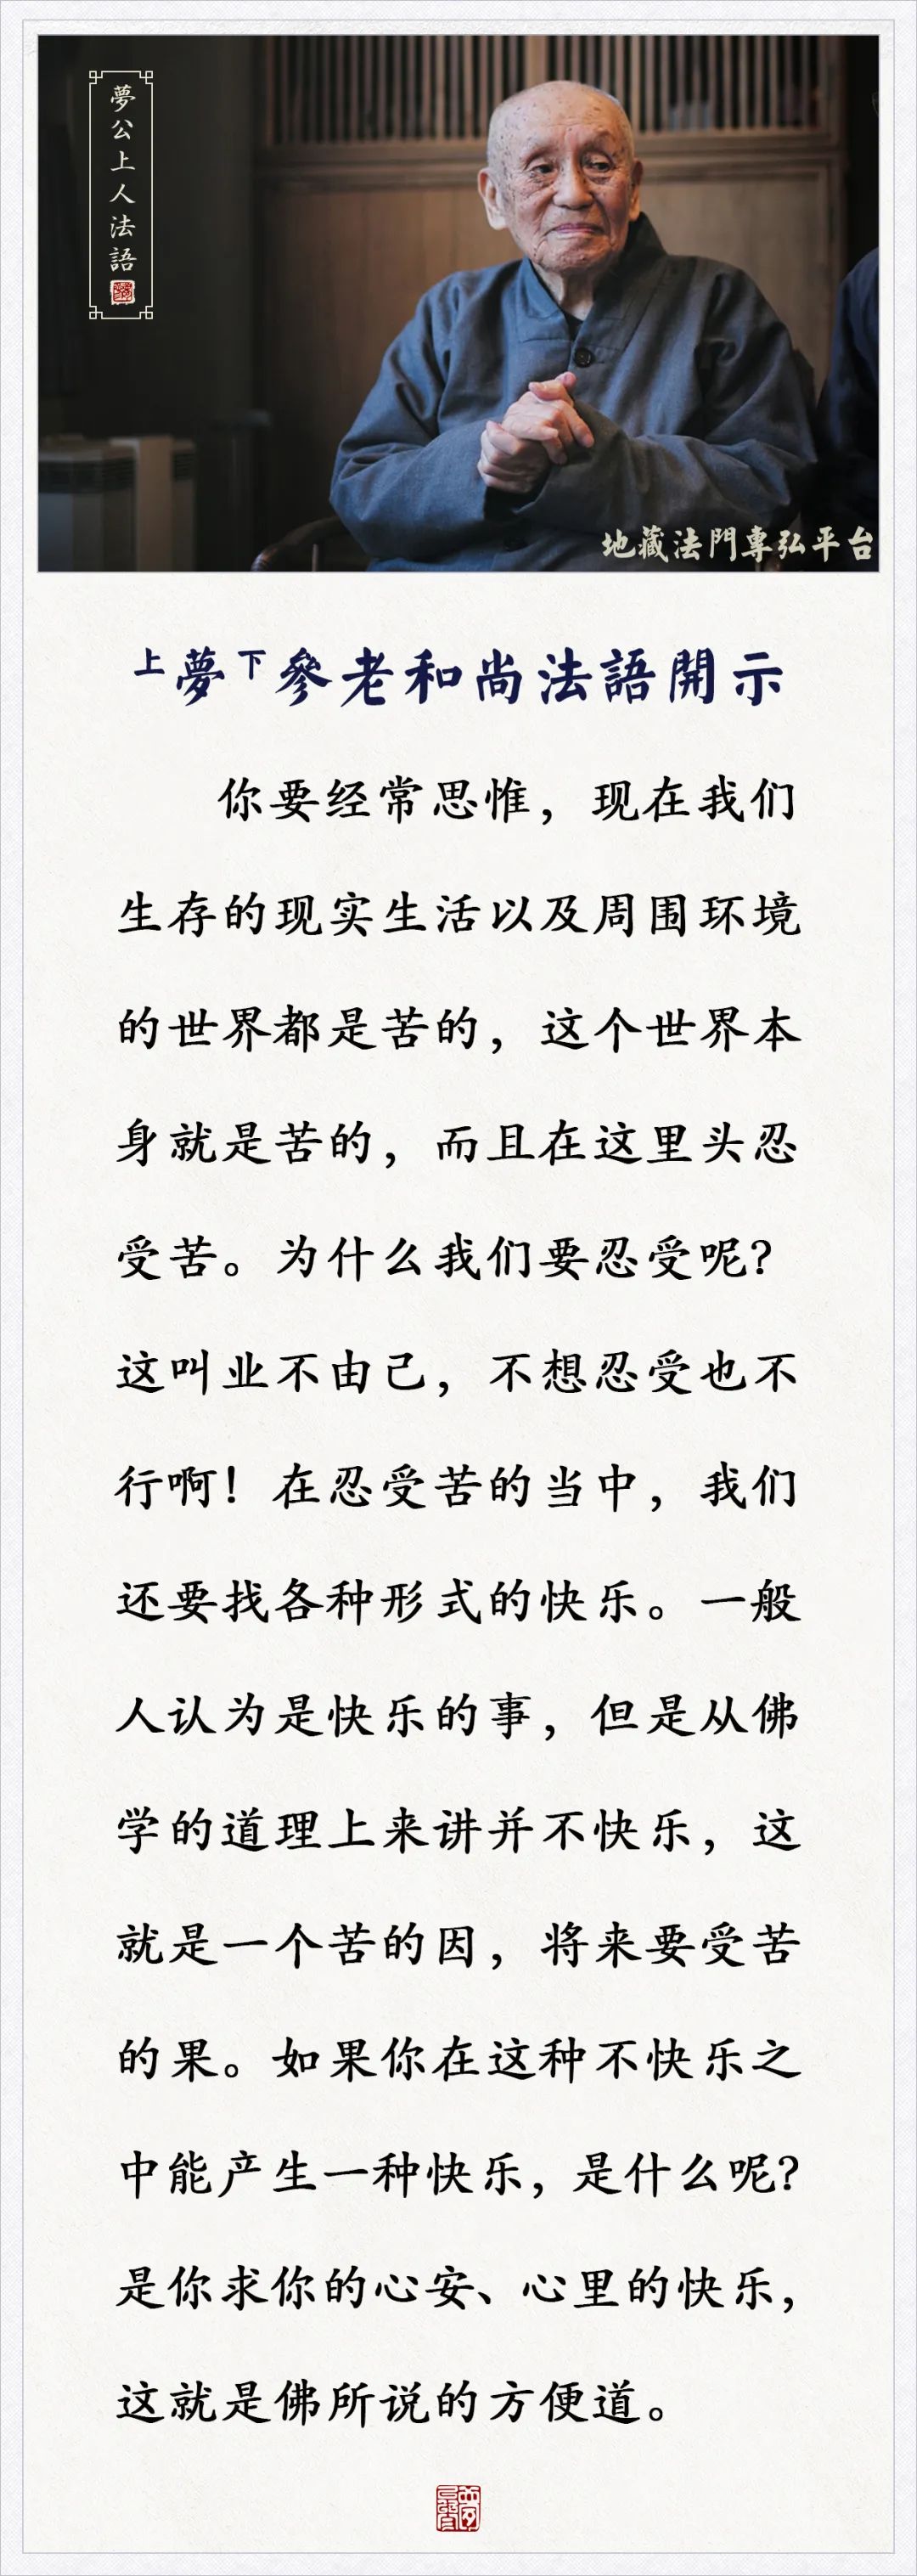 夢公上人法語
地藏法門專弘平台
上夢下參老和尚法語開示
你要经常思惟，现在我们
生存的现实生活以及周围环境
的世界都是苦的，这个世界本
身就是苦的，而且在这里头忍
受苦。为什么我们要忍受呢？
这叫业不由己，不想忍受也不
行啊！在忍受苦的当中，我们
还要找各种形式的快乐。一般
人认为是快乐的事，但是从佛
学的道理上来讲并不快乐，这
就是一个苦的因，将来要受苦
的果。如果你在这种不快乐之
中能产生一种快乐，是什么呢？
是你求你的心安、心里的快乐，
这就是佛所说的方便道。